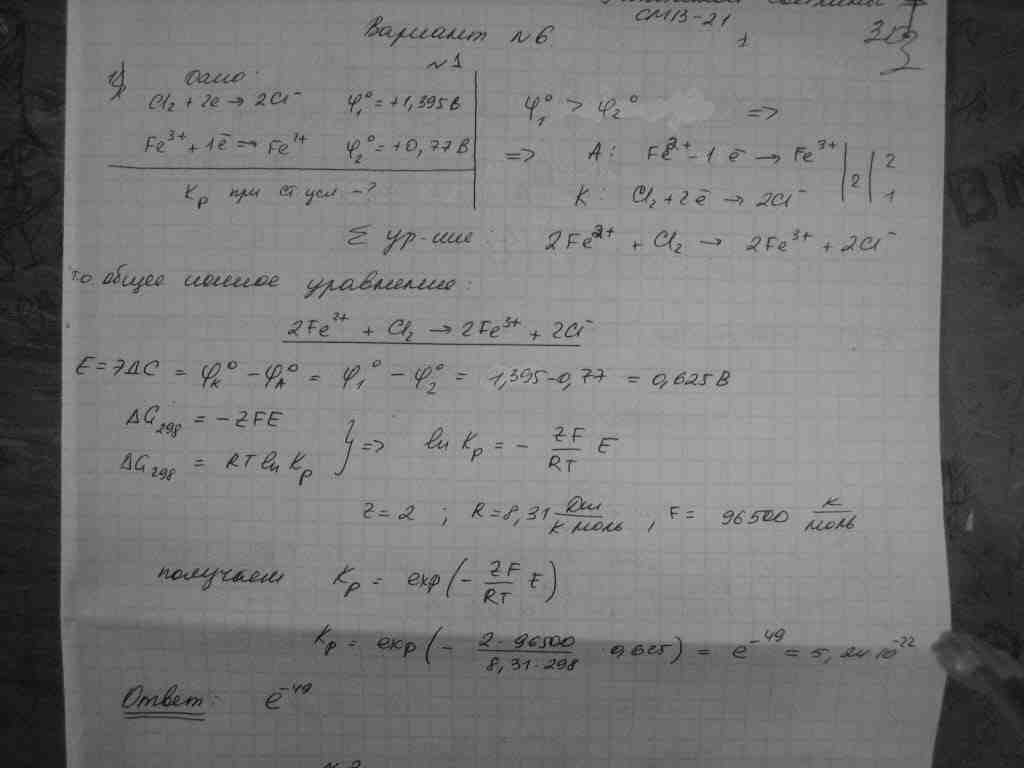 СМ13-21
Вариант №6
1
№1
1) Дано:
Cl₂ + 2e → 2Cl⁻ φ₁⁰ = +1,395 В
Fe³⁺ + 1ē → Fe²⁺ φ₂⁰ = +0,77 В
Kp при ст. усл. - ?
φ₁⁰ > φ₂⁰ =>
=> А: Fe²⁺ - 1ē → Fe³⁺ | 2 | 2
К: Cl₂ + 2ē → 2Cl⁻ | | 1
Σ ур-ние: 2Fe²⁺ + Cl₂ → 2Fe³⁺ + 2Cl⁻
т.о. общее ионное уравнение:
2Fe²⁺ + Cl₂ → 2Fe³⁺ + 2Cl⁻
E = ЭДС = φK⁰ - φA⁰ = φ₁⁰ - φ₂⁰ = 1,395-0,77 = 0,625 В
ΔG₂₉₈ = -ZFE
ΔG₂₉₈ = RT ln Kp } => ln Kp = - ZF/RT E
Z = 2 ; R = 8,31 Дж/К моль , F = 96500 К/моль
получаем Kp = exp(- ZF/RT E)
Kp = exp(- 2·96500/8,31·298 · 0,625) = e⁻⁴⁹ = 5,24·10⁻²²
Ответ: e⁻⁴⁹